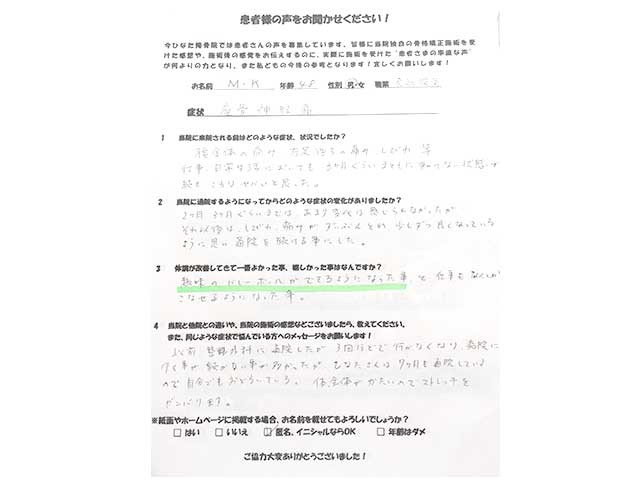 患者様の声をお聞かせください！
今ひなた接骨院では患者さんの声を募集しています、皆様に当院独自の骨格矯正施術を受
けた感想や、施術後の感覚をお伝えするのに、実際に施術を受けた“患者さまの率直な声”
が何よりの力となり、また私どもの今後の参考となります！宜しくお願いします！
お名前 M・K 年齢 48 性別 男・女 職業
症状 坐骨神経痛
1 当院に来院される前はどのような症状、状況でしたか？
腰全体の痛み 右足 の痛み しびれ 等
仕事、日常生活においても 3ヶ月ぐらいまともに 状態が
続き と思った。
2 当院に通院するようになってからどのような症状の変化がありましたか？
2ヶ月 3ヶ月ぐらいまでは、あまり変化は感じられなかったが
それ以後は、しびれ、痛みが だいぶんとれ 少しずつ良くなっている
ように思い通院を続ける事にした。
3 体調が改善してきて一番よかった事、嬉しかった事はなんですか？
趣味のバレーボールができるようになった事 と 仕事も なく
こなせるようになった事。
4 当院と他院との違いや、当院の施術の感想などございましたら、教えてください。
また、同じような症状で悩んでいる方へのメッセージをお願いします！
以前 整形外科に通院したが 3回ほどで行かなくなり、通院に
ても続かない事が多かったが ひなたさんは 7ヶ月も通院している
ので自分でもおどろいている。 体全体がかたいのでストレッチを
ガンバリます。
※紙面やホームページに掲載する場合、お名前を載せてもよろしいでしょうか？
□ はい □ いいえ ☑ 匿名、イニシャルならOK □ 年齢はダメ
ご協力大変ありがとうございました！